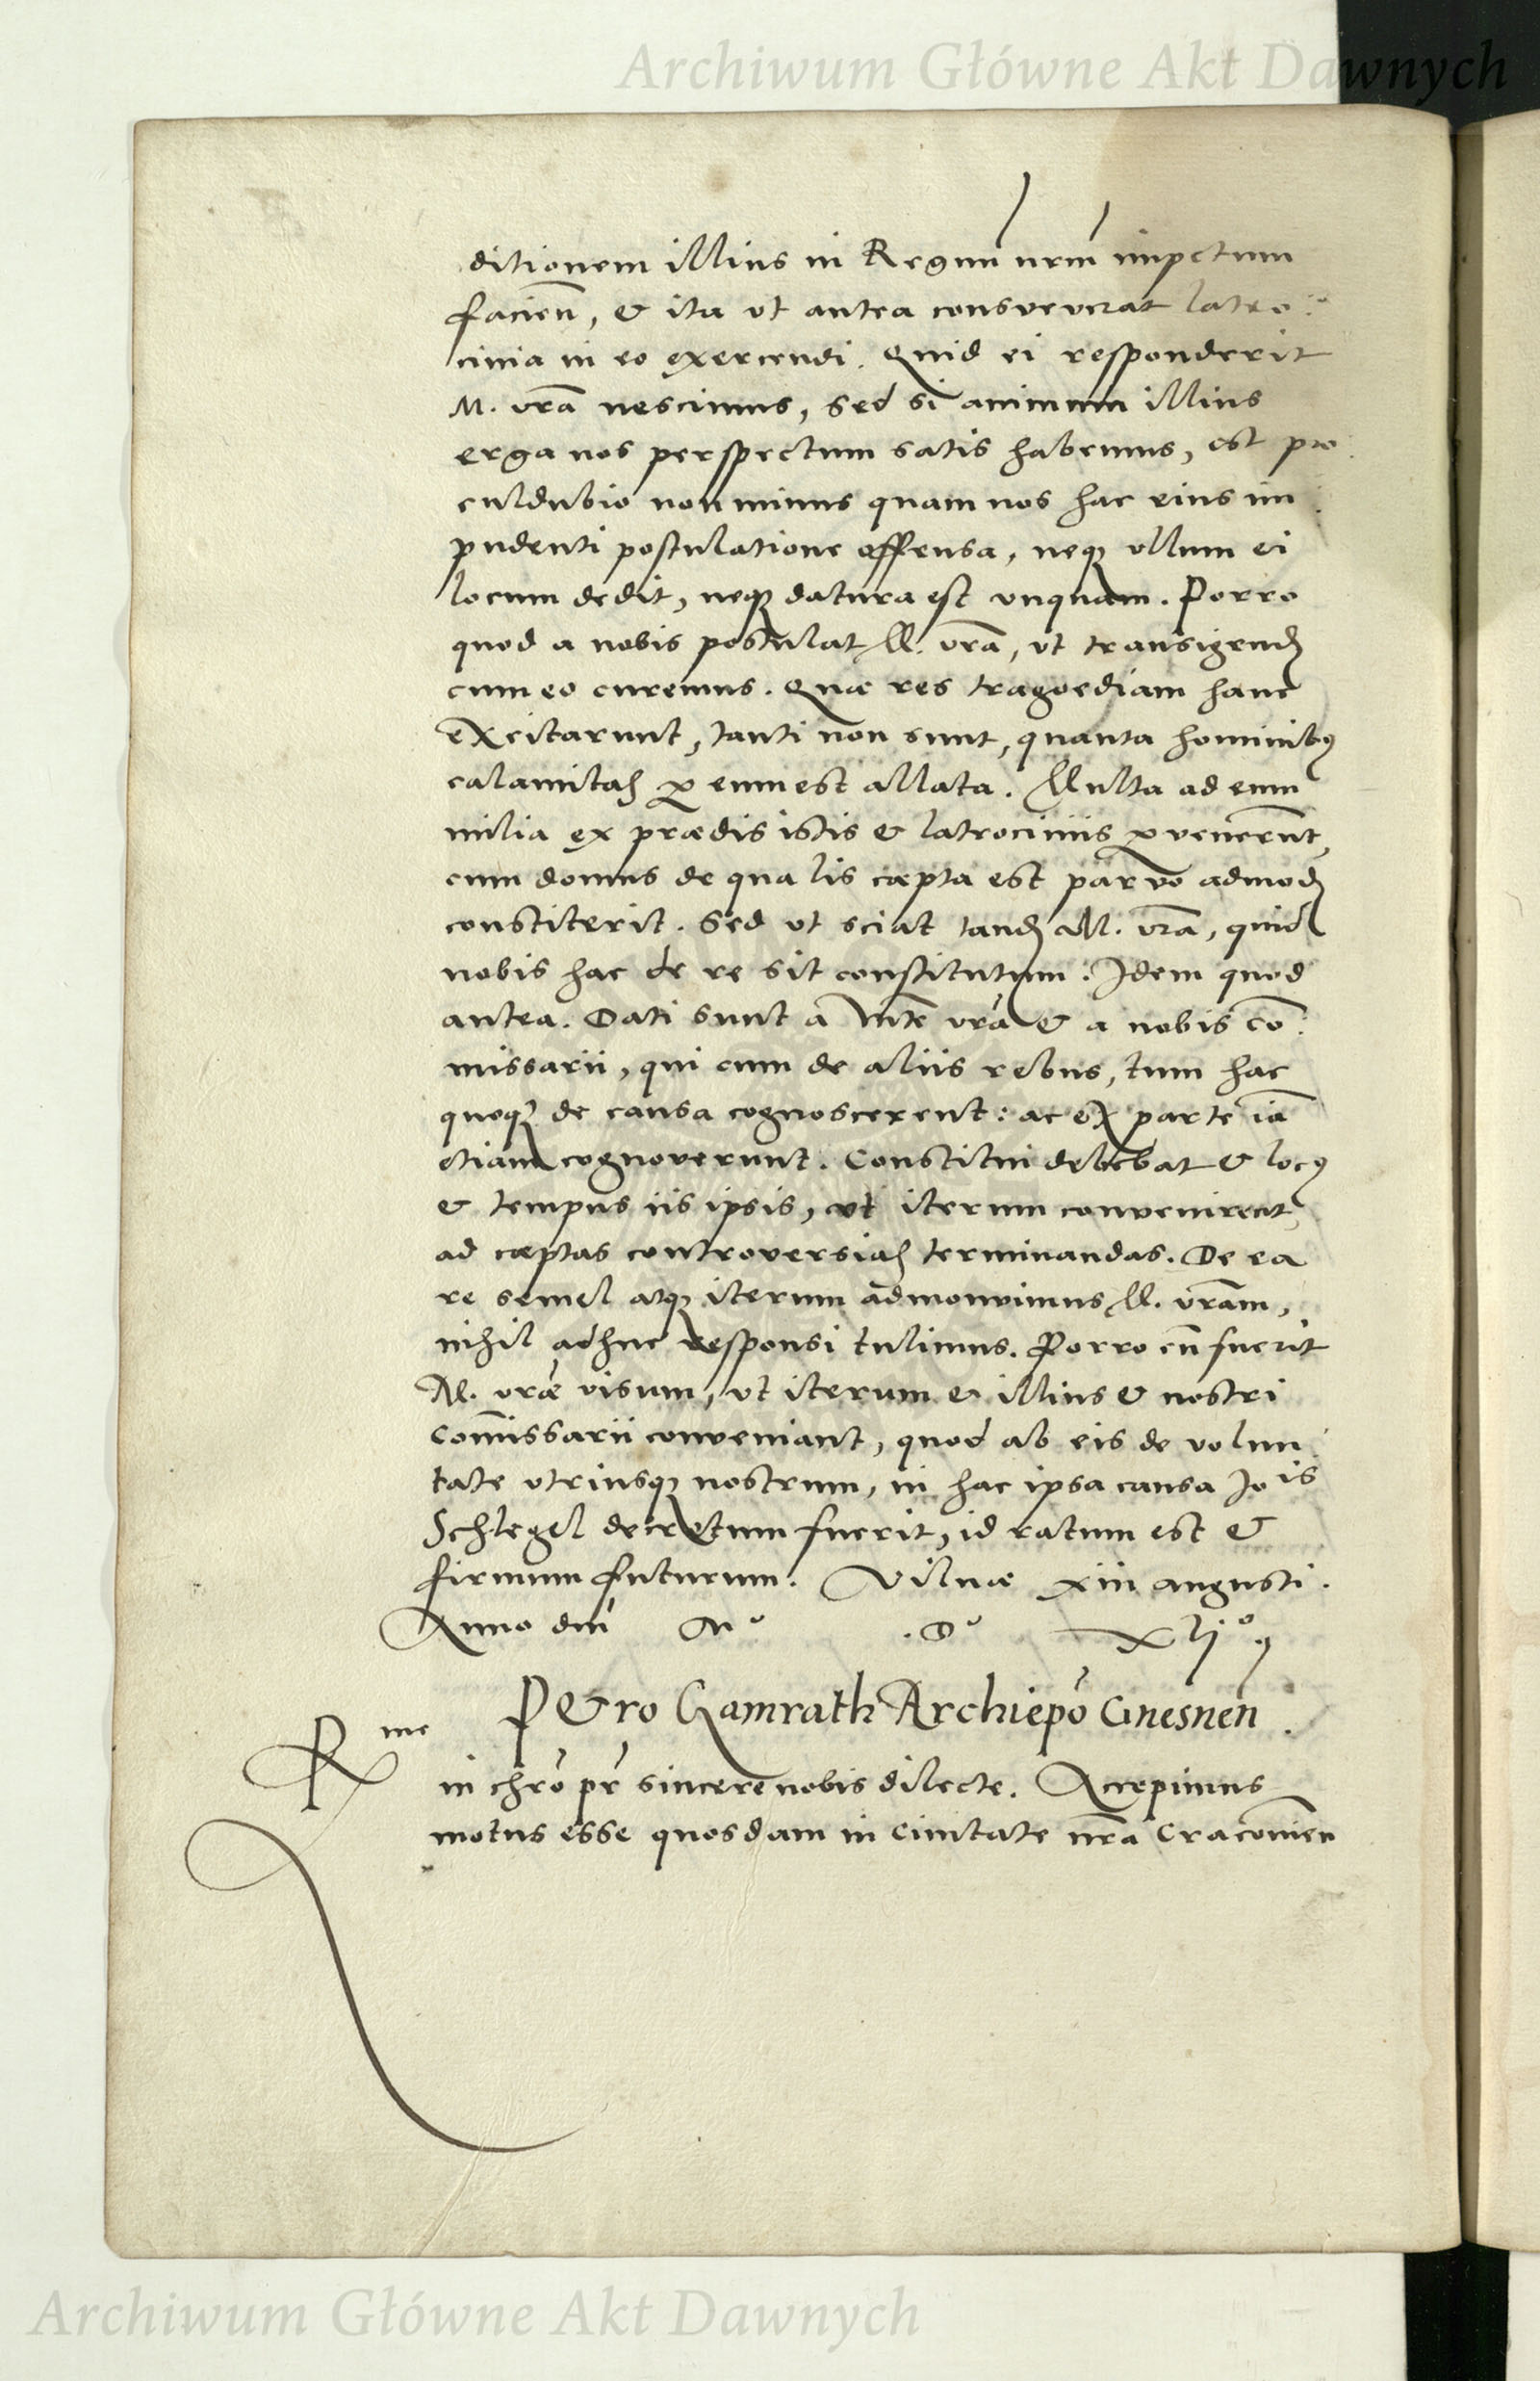 Archiwum Główne Akt Dawnych
ditionem illius in Regnũ nrm̃ impetum
facien̄, & ita vt antea consveverat latro:
cinia in eo exercendi. Quid ei responderit
M. vrã nescimus, Sed si animum illius
erga nos perspectum satis habemus, est pro
culdubio non minus quam nos hac eius im
pudenti postulatione offensa, neqȝ vllum ei
locum dedit, neqȝ datura est vnquam. Porro
quod a nobis postulat M. vrã, vt transigendȷ
cum eo curemus. Quæ res tragoediam hanc
excitarunt, tanti non sunt, quanta hominibꝯ
calamitaȷ ꝑ eum est allata. Multa ad eum
milia ex prædis istis & latrociniis ꝑvenerũt,
cum domus de qua lis cœpta est parvo admodȷ
constiterit. Sed vt sciat tandȷ M. vrã, quid
nobis hac de re sit constitutum: Idem quod
antea. Dati sunt a Mte vrã & a nobis cō:
missarii, qui cum de aliis rebus, tum hac
quoqȝ de causa cognoscerent: ac ex parte iã
etiam cognoverunt. Constitui debebat & locꝯ
& tempus iis ipsis, vt iterum convenirent,
ad cœptas controversiaȷ terminandas. De ea
re semel atqȝ iterum admonuimus M. vrãm,
nihil adhuc responsi tulimus. Porro cũ fuerit
M. vræ̃ visum, vt iterum & illius & nostri
com̃issarii conveniant, quod ab eis de volun
tate vtriusqȝ nostrum, in hac ipsa causa Jo is
Schlegel decretum fuerit, id ratum est &
firmum futurum. Vilnæ xiii augusti.
Anno dnĩ M° .D° xlij°
Petro Gamrath Archiepõ Gnesnen̄.
Rme
in chrõ pr̃ sincere nobis dilecte. Accepimus
motus esse quosdam in Civitate nr̃a Cracovien̄
Archiwum Główne Akt Dawnych